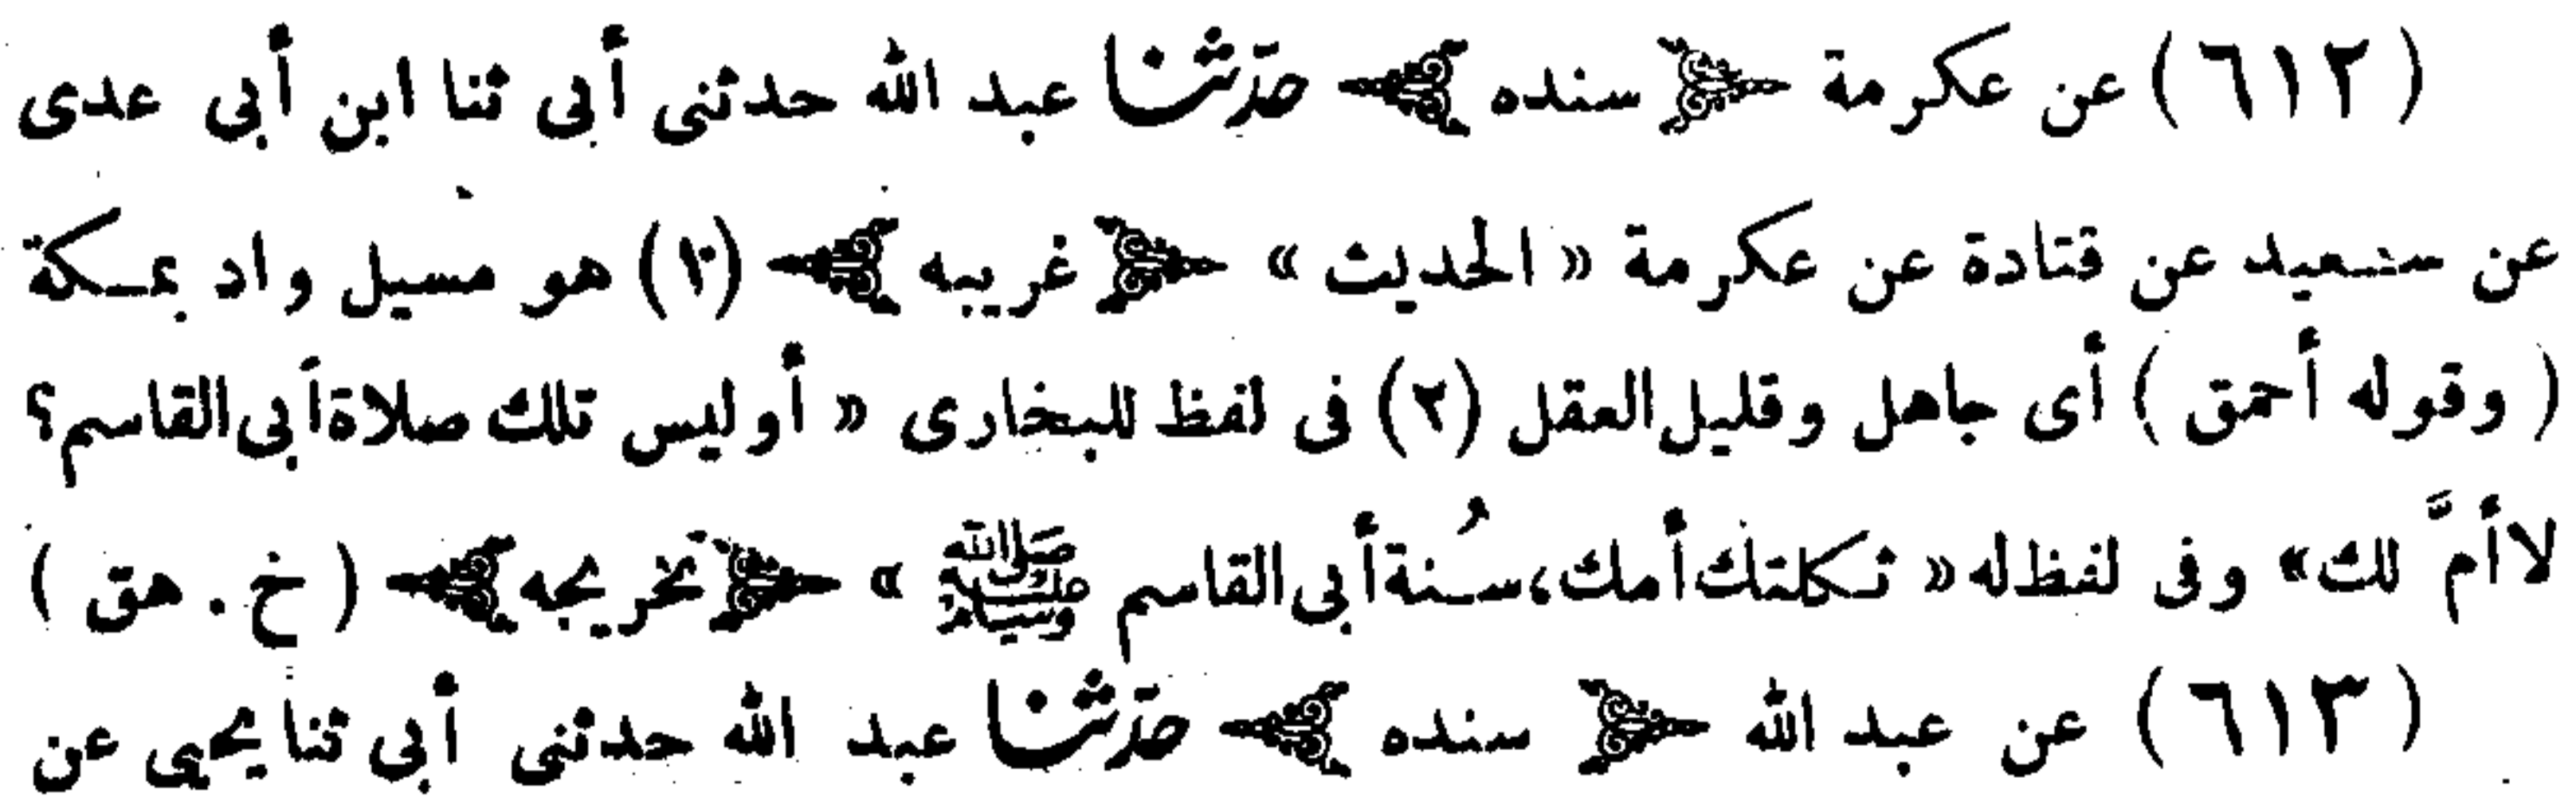 (٦١٢) عن عكرمة ﴿ سنده ﴾ حدّثنا عبد الله حدثنى أبى ثنا ابن أبى عدى
عن سعيد عن قتادة عن عكرمة « الحديث » ﴿ غريبه ﴾ (١) هو مسيل واد بمكة
( وقوله أحمق ) أى جاهل وقليل العقل (٢) فى لفظ للبخارى « أو ليس تلك صلاة أبى القاسم؟
لا أمَّ لك» وفى لفظ له « ثكلتك أمك، سُنة أبى القاسم ﷺ » ﴿ تخريجه ﴾ ( خ . هق )
(٦١٣) عن عبد الله ﴿ سنده ﴾ حدّثنا عبد الله حدثنى أبى ثنا يحيى عن